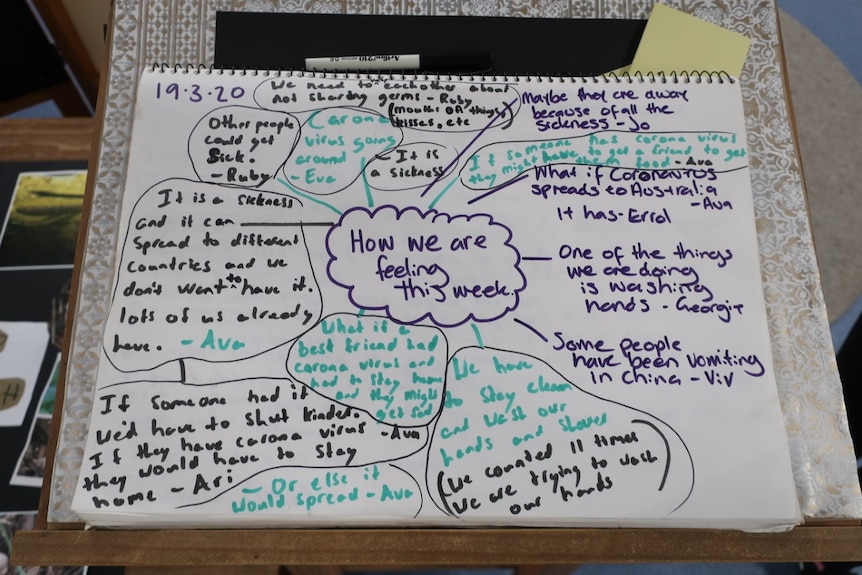 Artline 210
19.3.20
We need to eachother about
not sharing germs - Ruby
(mouths on things,
kisses, etc)
Maybe they are away
because of all the
sickness - Jo
Other people
could get
sick.
- Ruby
Carona
virus going
around
- Eva
- It is
a sickness
If someone has corona virus
they might have to get a friend to get
them food - Ava
What if Coronavirus
spreads to Australia
- Ava
It has - Errol
It is a sickness
and it can
spread to different
countries and we
don't want to have it.
lots of us already
have. - Ava
How we are
feeling
this week.
One of the things
we are doing
is washing
hands - Georgie
Some people
have been vomiting
in China - Viv
What if a
best friend had
corona virus and
had to stay home
and they might
get sad
We have
to stay clean
and wash our
hands and shower
(We counted 11 times
we are trying to wash
our hands)
If someone had it
we'd have to shut kinder.
- Ava
If they have carona virus
they would have to stay
home - Ari
- Or else it
would spread - Ava
H